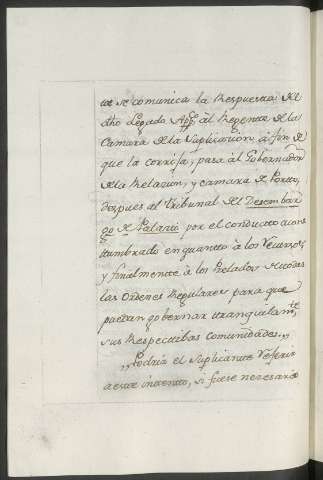 te se comunica la Respuesta del
dho Legado App.º al Regente de la
Camara de la Suplicacion, a fin de
que la corrija, pasa al Gobernador
de la Relacion, y camara de Portto,
despues al Tribunal del Desembar
go de Palacio por el conducto acos
tumbrado en quantto à los Recursos
y finalmente à los Prelados de todas
las Ordenes Regulares para que
puedan gobernar tranquilam.te
sus Respectibas Comunidades.,,
,,Podria el Suplicante Referir
a este intentto, si fuese necesario